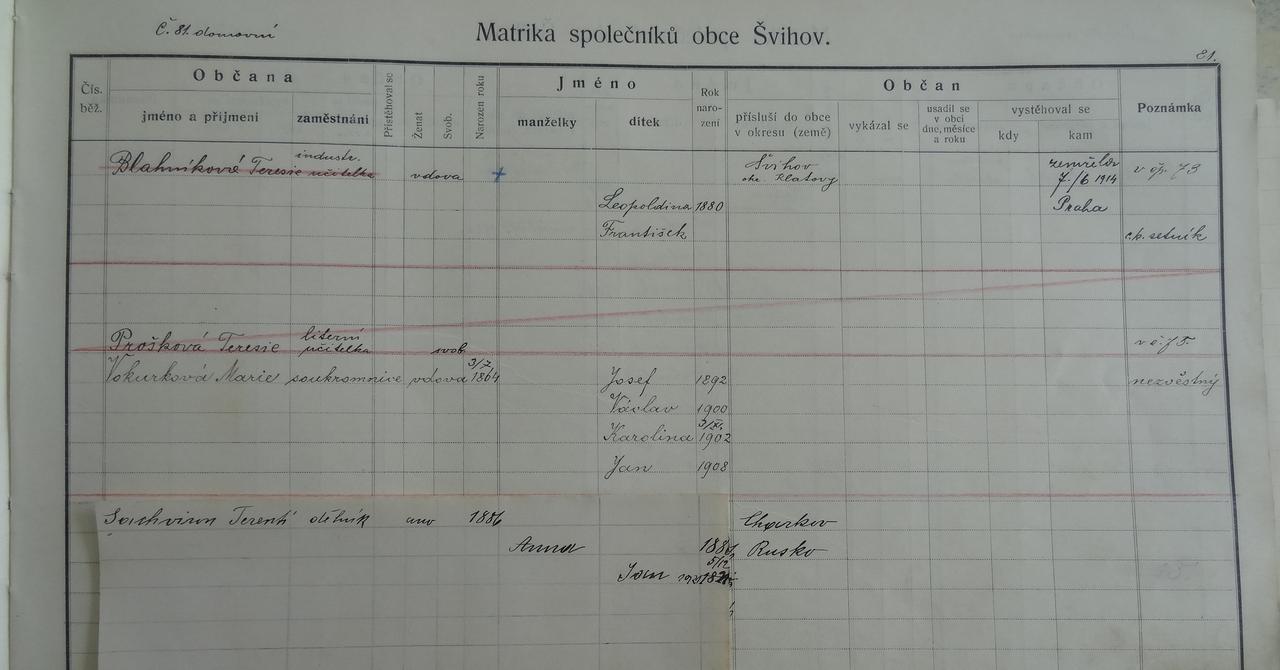 Č. 81. domovní
Matrika společníků obce Švihov.
81.
Čís. běž.
Občana
jméno a příjmení
zaměstnání
Přistěhoval se
Ženat
Svob.
Narozen roku
Jméno
manželky
dítek
Rok naro- zení
Občan
přísluší do obce v okresu (země)
vykázal se
usadil se v obci dne, měsíce a roku
vystěhoval se
kdy
kam
Poznámka
Blahníková Teresie industr. učitelka vdova + Švihov okr. Klatovy zemřela 7./6 1914 v čp. 73
Leopoldina 1880 Praha
František c.k. setník
Prošková Teresie literní učitelka svob. v č. 75.
Vokurková Marie soukromnice vdova 3/7. 1864 Josef 1892 nezvěstný
Václav 1900
Karolina 3/XI. 1902
Jan 1908
Terentí dělník ano 1886 Charkov
Anna Rusko
5/12
Jan